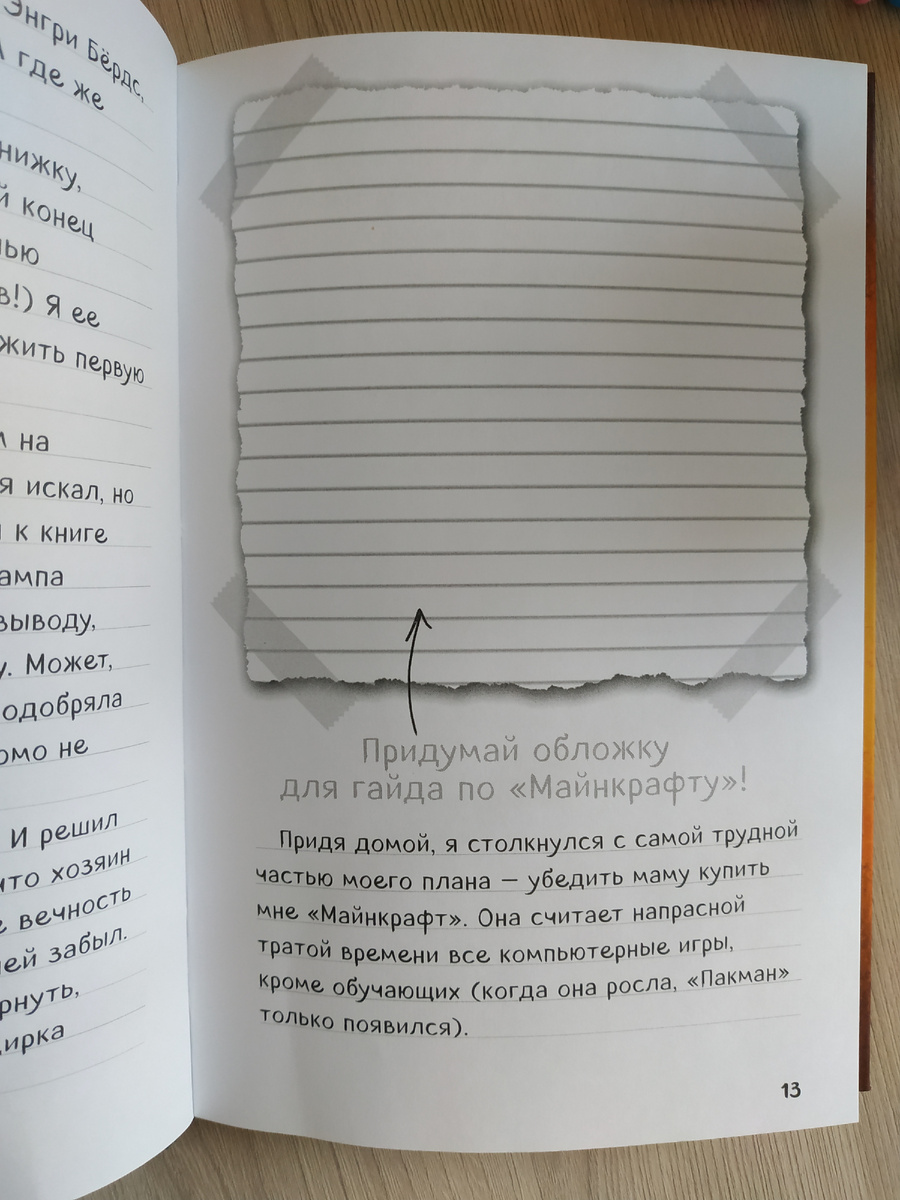 Энгри Бёрдс,
где же
нижку,
й конец
ью
в!) Я ее
жить первую
на
я искал, но
к книге
ампа
выводу,
у. Может,
одобряла
омо не
И решил
что хозяин
е вечность
ней забыл.
рнуть,
дирка
Придумай обложку
для гайда по «Майнкрафту»!
Придя домой, я столкнулся с самой трудной
частью моего плана — убедить маму купить
мне «Майнкрафт». Она считает напрасной
тратой времени все компьютерные игры,
кроме обучающих (когда она росла, «Пакман»
только появился).
13